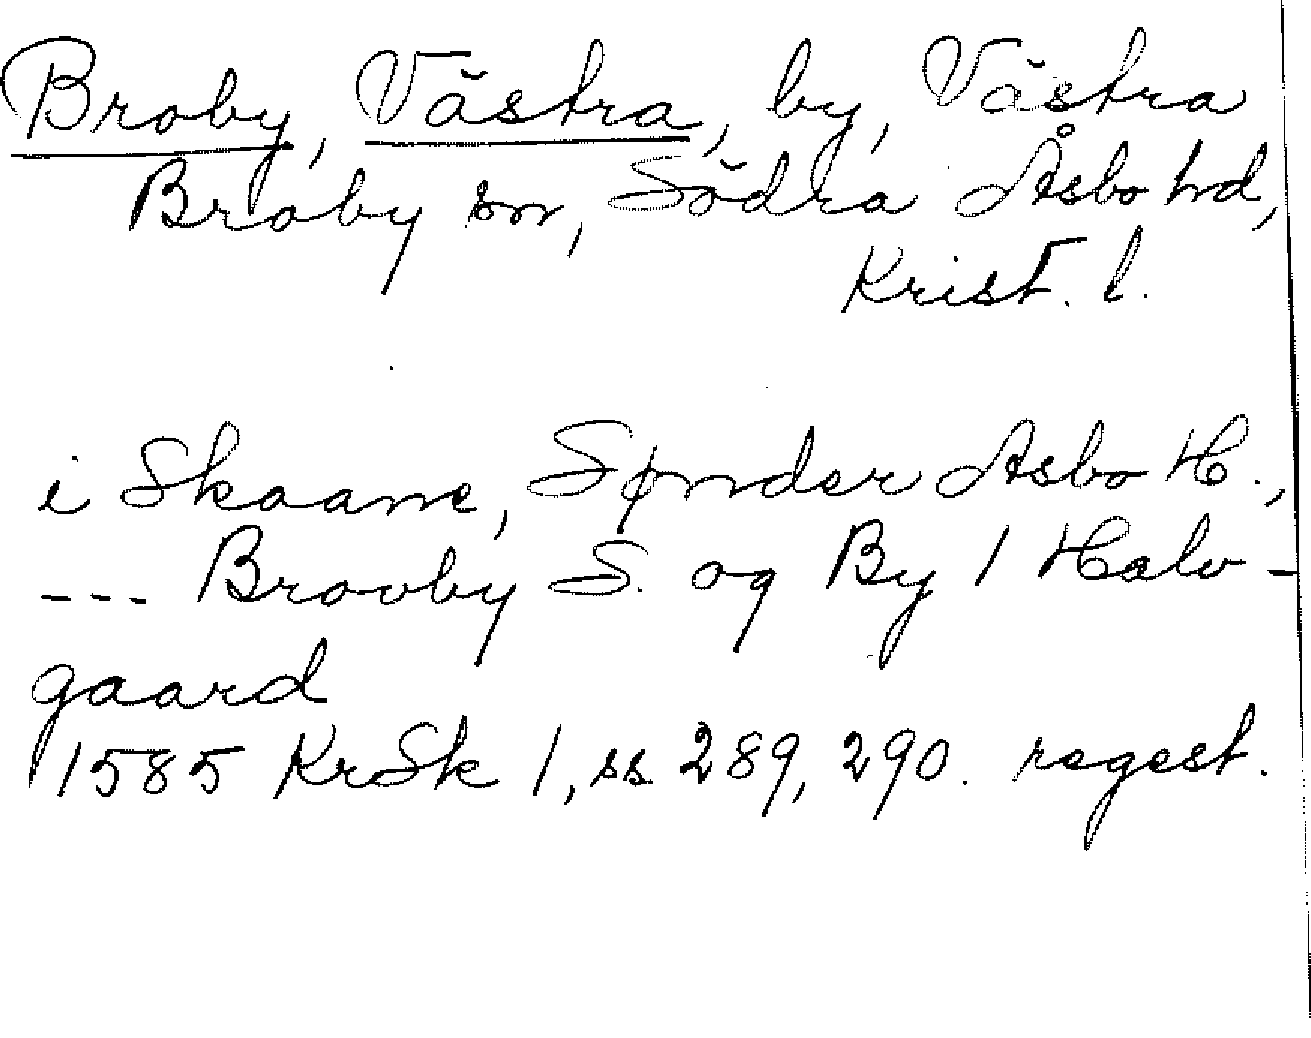 Broby, Västra, by, Västra
Broby sn, Södra Åsbo hd,
Krist. l.
i Skaane, Sønder Asbo H.,
--- Brovby S. og By 1 Halv-
gaard
1585 KrSk 1, ss 289, 290. regest.